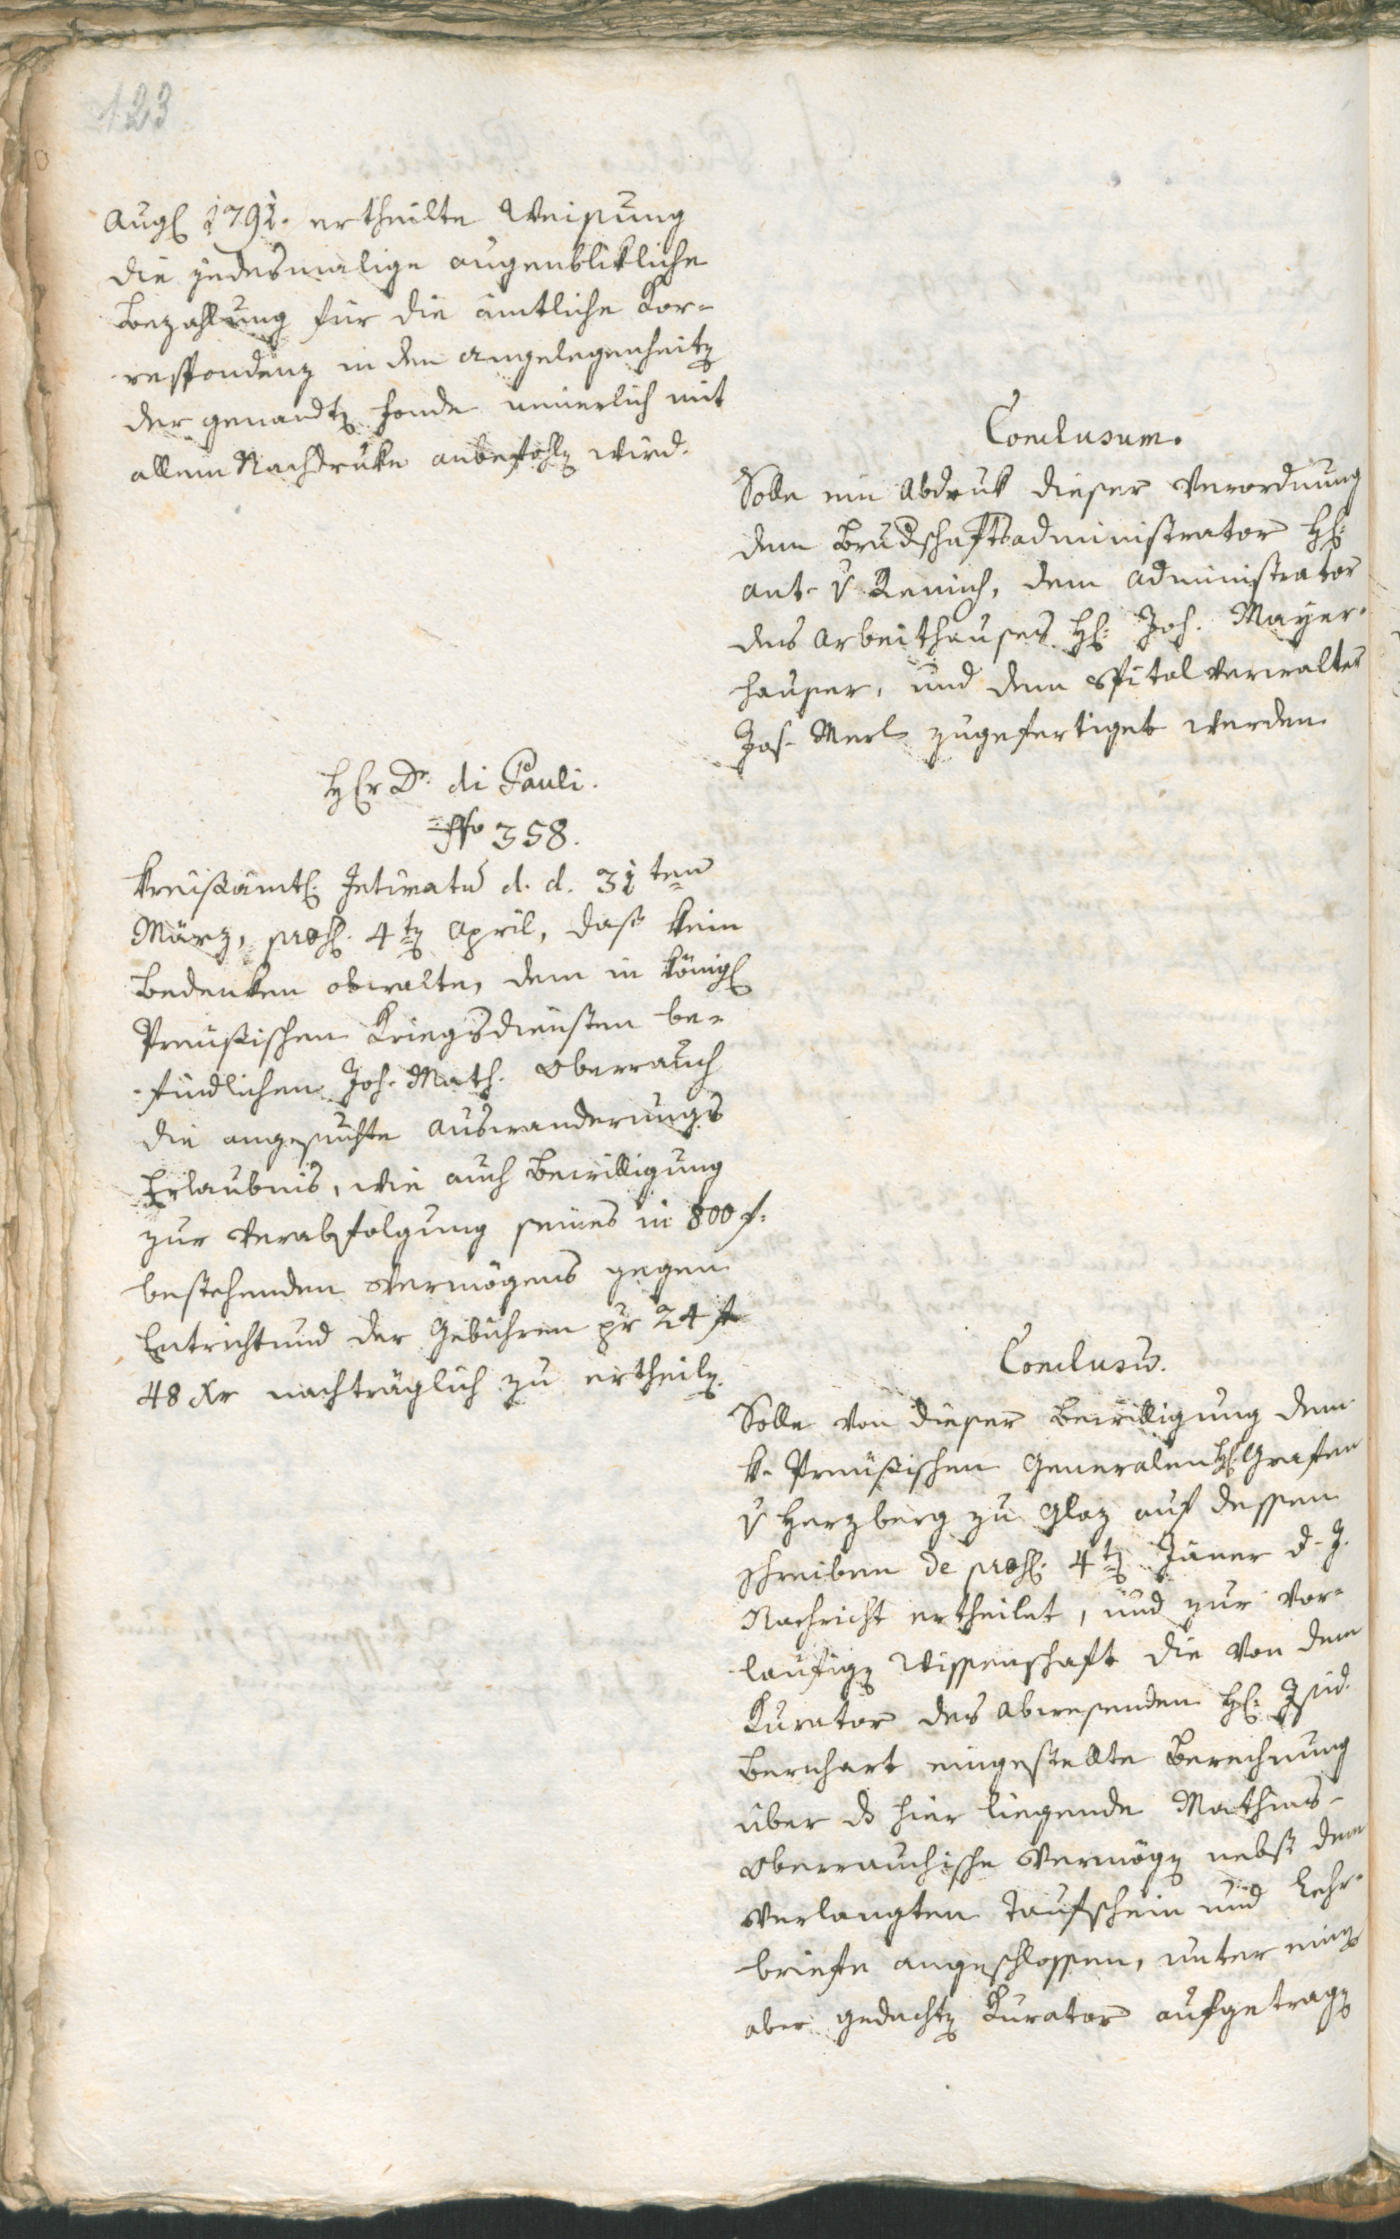 123
Augl 1791. ertheilte Weisung
die jedesmalige augenblikliche
Bezahlung für die ämtliche Kor-
respondenz in den Angelegenheiten
der genandten Fonde neuerlich mit
allem Nachdruke anbefohlen wird.
Conclusum.
Solle ein Abdruk dieser Verordnung
dem Brudschaftsadministrator H:
Ant. v Remich, dem Administrator
des Arbeithauses H: Joh. Mayer-
hauser, und dem Spitalverwalter
Jos. Merl zugefertiget werden.
HEr Dr. di Pauli.
No 358.
Kreisämtl. Intimatum d. d. 31ten
März, præs. 4ten April, dass kein
Bedenken obwalte, dem in königl
Preussischen Kriegsdiensten be-
findlichen Joh. Math. Oberrauch
die angesuchte Auswanderungs
Erlaubnis, wie auch Bewilligung
zur Verabfolgung seines in 800 f.
bestehenden Vermögens gegen
Entrichtund der Gebühren pr 24 f
48 Xr nachträglich zu ertheilen.
Conclusum.
Solle von dieser Bewilligung dem
k. Preussischen Generalen H: Grafen
v Herzberg zu Glaz auf dessen
Schreiben de præs. 4ten Jäner d. J.
Nachricht ertheilet, und zur vor-
läufigen Wissenschaft die von dem
Kurator des Abwesenden H: Isid.
Bernhart eingestellte Berechnung
über ds hier liegende Mathias-
Oberrauchische Vermögen nebst dem
verlangten Taufschein und Lehr-
briefe angeschlossen, unter einen
aber gedachten Kurator aufgetragen